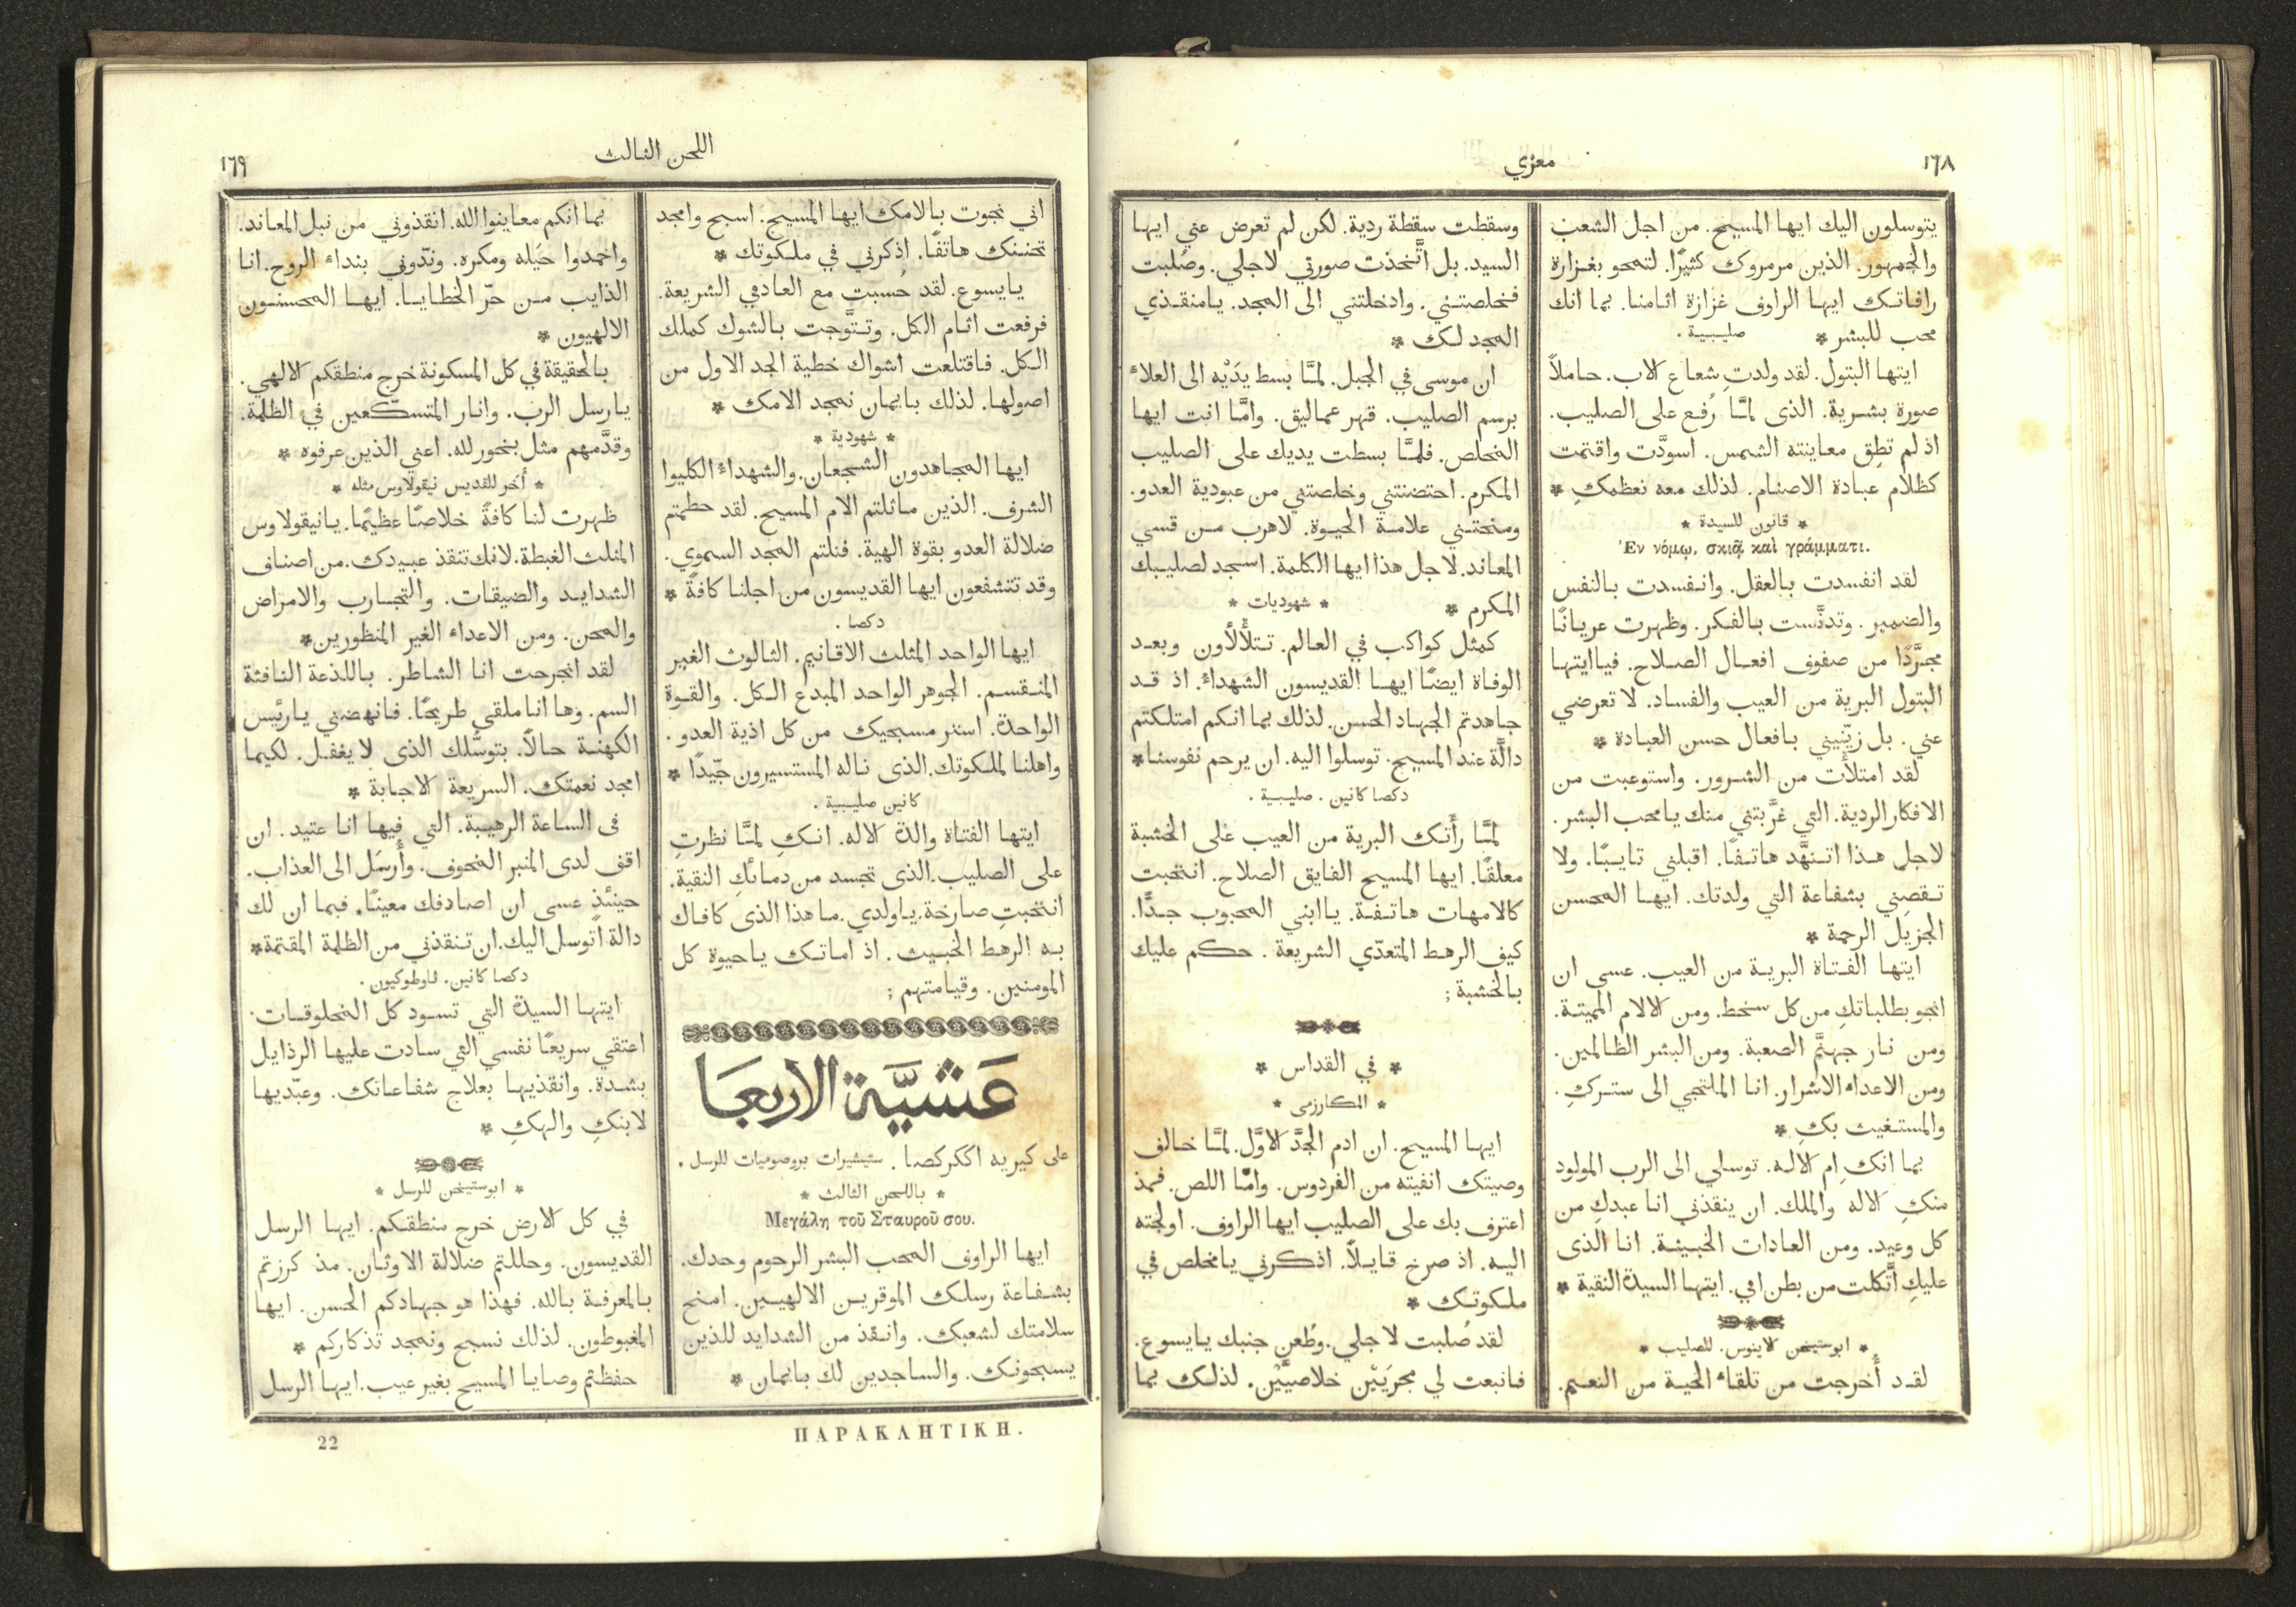 ١٦٨
معزي
يتوسلون اليك ايها المسيح. من اجل الشعب
والجمهور. الذين مرمروك كثيرًا. لتمحو بغزارة
رافاتك ايها الراوف غزارة اثامنا. بما انك
محب للبشر * صليبية.
ايتها البتول. لقد ولدتِ شعاع الاب. حاملاً
صورة بشرية. الذى لمَّا رُفع على الصليب.
اذ لم تطِق معاينته الشمس. اسودَّت واقتمت
كظلام عبادة الاصنام. لذلك معه نعظمكِ *
* قانون للسيدة *
Ἐν νόμῳ, σκιᾷ καὶ γράμματι.
لقد انفسدت بالعقل. وانفسدت بالنفس
والضمير. وتدنَّست بالفكر. وظهرت عريانًا
مجرَّدًا من صفوف افعال الصلاح. فيا ايتها
البتول البرية من العيب والفساد. لا تعرضي
عني. بل زيّنيني بافعال حسن العبادة *
لقد امتلأت من الشرور. واستوعبت من
الافكار الردية. التي غرَّبتني منك يا محب البشر.
لاجل هذا اتنهَّد هاتفًا. اقبلني تايبًا. ولا
تقصِني بشفاعة التي ولدتك. ايها المحسن
الجزيل الرحمة *
ايتها الفتاة البرية من العيب. عسى ان
انجو بطلباتكِ من كل سخط. ومن الالام المميتة.
ومن نار جهنَّم الصعبة. ومن البشر الظالمين.
ومن الاعداء الاشرار. انا الملتجي الى ستركِ.
والمستغيث بكِ *
بما انكِ ام الاله. توسلي الى الرب المولود
منكِ الاله والملك. ان ينقذني انا عبدكِ من
كل وعيد. ومن العادات الخبيثة. انا الذى
عليكِ اتَّكلت من بطن امي. ايتها السيدة النقية *
* ابوستيخن لاينوس. للصليب *
لقد أُخرجت من تلقاء الحية من النعيم.
وسقطت سقطة ردية. لكن لم تعرض عني ايها
السيد. بل اتَّخذت صورتي لاجلي. وصُلبت
فخلصتني. وادخلتني الى المجد. يا منقذي
المجد لك *
ان موسى في الجبل. لمَّا بسط يدَيْه الى العلاء
برسم الصليب. قهر عماليق. وامَّا انت ايها
المخلص. فلمَّا بسطت يديك على الصليب
المكرم. احتضنتني وخلصتني من عبودية العدو.
ومنحتني علامة الحيوة. لاهرب من قسي
المعاند. لاجل هذا ايها الكلمة. اسجد لصليبك
المكرم * * شهوديات *
كمثل كواكب في العالم. تتلألأون وبعد
الوفاة ايضًا ايها القديسون الشهداء. اذ قد
جاهدتم الجهاد الحسن. لذلك بما انكم امتلكتم
دالَّة عند المسيح. توسلوا اليه. ان يرحم نفوسنا*
دكصا كانين. صليبية.
لمَّا رأَتك البرية من العيب على الخشبة
معلقًا. ايها المسيح الفايق الصلاح. انتحبت
كالامهات هاتفة. يا ابني المحبوب جدًّا.
كيف الرهط المتعدّي الشريعة. حكم عليك
بالخشبة;
* في القداس *
* المكارزمى *
ايها المسيح. ان ادم الجدَّ الاوَّل. لمَّا خالف
وصيتك انفيته من الفردوس. وامَّا اللص. فمذ
اعترف بك على الصليب ايها الراوف. اولجته
اليه. اذ صرخ قايلاً. اذكرني يا مخلص في
ملكوتك *
لقد صُلبت لاجلي. وطُعن جنبك يا يسوع.
فانبعت لي مجرَيَيْن خلاصيَّيْن. لذلك بما
اللحن الثالث
١٦٩
اني نجوت بالامك ايها المسيح. اسبح وامجد
تحننك هاتفًا. اذكرني في ملكوتك *
يا يسوع. لقد حُسبت مع العادمي الشريعة.
فرفعت اثام الكل. وتتوَّجت بالشوك كملك
الكل. فاقتلعت اشواك خطية الجد الاول من
اصولها. لذلك بايمان نمجد الامك *
* شهودية *
ايها المجاهدون الشجعان. والشهداء الكليوا
الشرف. الذين ماثلتم الام المسيح. لقد حطمتم
ضلالة العدو بقوة الهية. فنلتم المجد السموي.
وقد تتشفعون ايها القديسون من اجلنا كافةً *
دكصا.
ايها الواحد المثلث الاقانيم. الثالوث الغير
المنقسم. الجوهر الواحد المبدع الكل. والقوة
الواحدة. استر مسبحيك من كل اذية العدو.
واهلنا لملكوتك. الذى ناله المستسيرون جيّدًا *
كانين صليبية.
ايتها الفتاة والدة الاله. انكِ لمَّا نظرتِ
على الصليب. الذى تجسد من دمائكِ النقية.
انتحبتِ صارخة. يا ولدي. ما هذا الذى كافاك
به الرهط الخبيث. اذ اماتك يا حيوة كل
المومنين. وقيامتهم;
عَشيَّة الاربعَا
على كيريه اككركصا. ستيشيرات بروصوميات للرسل.
* باللحن الثالث *
Μεγάλη τοῦ Σταυροῦ σου.
ايها الراوف المحب البشر الرحوم وحدك.
بشفاعة رسلك الموقرين الالهيين. امنح
سلامتك لشعبك. وانقذ من الشدايد للذين
يسبحونك. والساجدين لك بايمان *
بما انكم معاينوا الله. انقذوني من نبل المعاند.
واخمدوا حيَله ومكره. وندّوني بنداء الروح. انا
الذايب من حرّ الخطايا. ايها المحسنون
الالهيون *
بالحقيقة في كل المسكونة خرج منطقكم الالهي.
يا رسل الرب. وانار المتسكّعين في الظلمة.
وقدَّمهم مثل بخور لله. اعني الذين عرفوه *
* أُخر للقديس نيقولاوس مثله *
ظهرت لنا كافةً خلاصًا عظيمًا. يا نيقولاوس
المثلث الغبطة. لانك تنقذ عبيدك. من اصناف
الشدايد والضيقات. والتجارب والامراض
والمحن. ومن الاعداء الغير المنظورين*
لقد انجرحت انا الشاطر. باللذعة النافثة
السم. وها انا ملقى طريحًا. فانهضني يا رئيس
الكهنة حالاً. بتوسُّلك الذى لا يغفل. لكيما
امجد نعمتك. السريعة الاجابة *
فى الساعة الرهيبة. التي فيها انا عتيد. ان
اقف لدى المنبر المخوف. وأُرسَل الى العذاب.
حينئذٍ عسى ان اصادفك معينًا. فبما ان لك
دالة اتوسل اليك. ان تنقذني من الظلمة المقتمة*
دكصا كانين. ثاوطوكيون.
ايتها السيدة التي تسود كل المخلوقات.
اعتقي سريعًا نفسي التي سادت عليها الرذايل
بشدة. وانقذيها بعلاج شفاعاتك. وعبّديها
لابنكِ والهكِ *
* ابوستيخن للرسل *
في كل الارض خرج منطقكم. ايها الرسل
القديسون. وحللتم ضلالة الاوثان. مذ كرزتم
بالمعرفة بالله. فهذا هو جهادكم الحسن. ايها
المغبوطون. لذلك نسبح ونمجد تذكاركم *
حفظتم وصايا المسيح بغير عيب. ايها الرسل
ΠΑΡΑΚΛΗΤΙΚΗ.
22